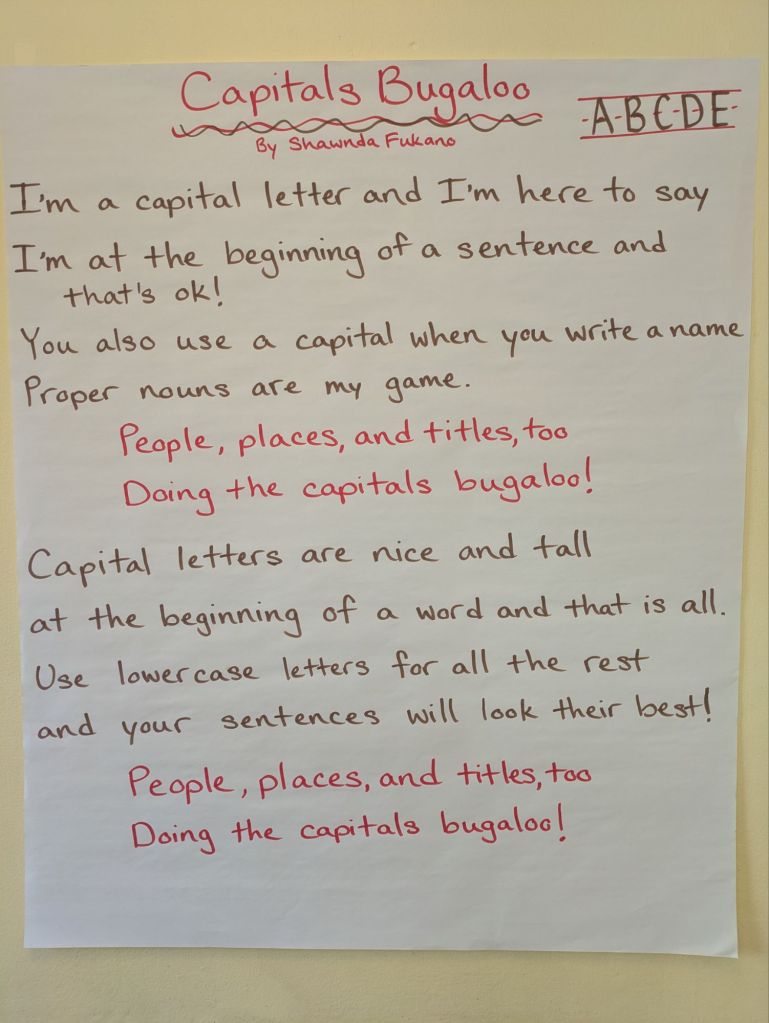 Capitals Bugaloo
A-B-C-D-E
By Shawnda Fukano
I'm a capital letter and I'm here to say
I'm at the beginning of a sentence and
that's ok!
You also use a capital when you write a name
Proper nouns are my game.
People, places, and titles, too
Doing the capitals bugaloo!
Capital letters are nice and tall
at the beginning of a word and that is all.
Use lowercase letters for all the rest
and your sentences will look their best!
People, places, and titles, too
Doing the capitals bugaloo!